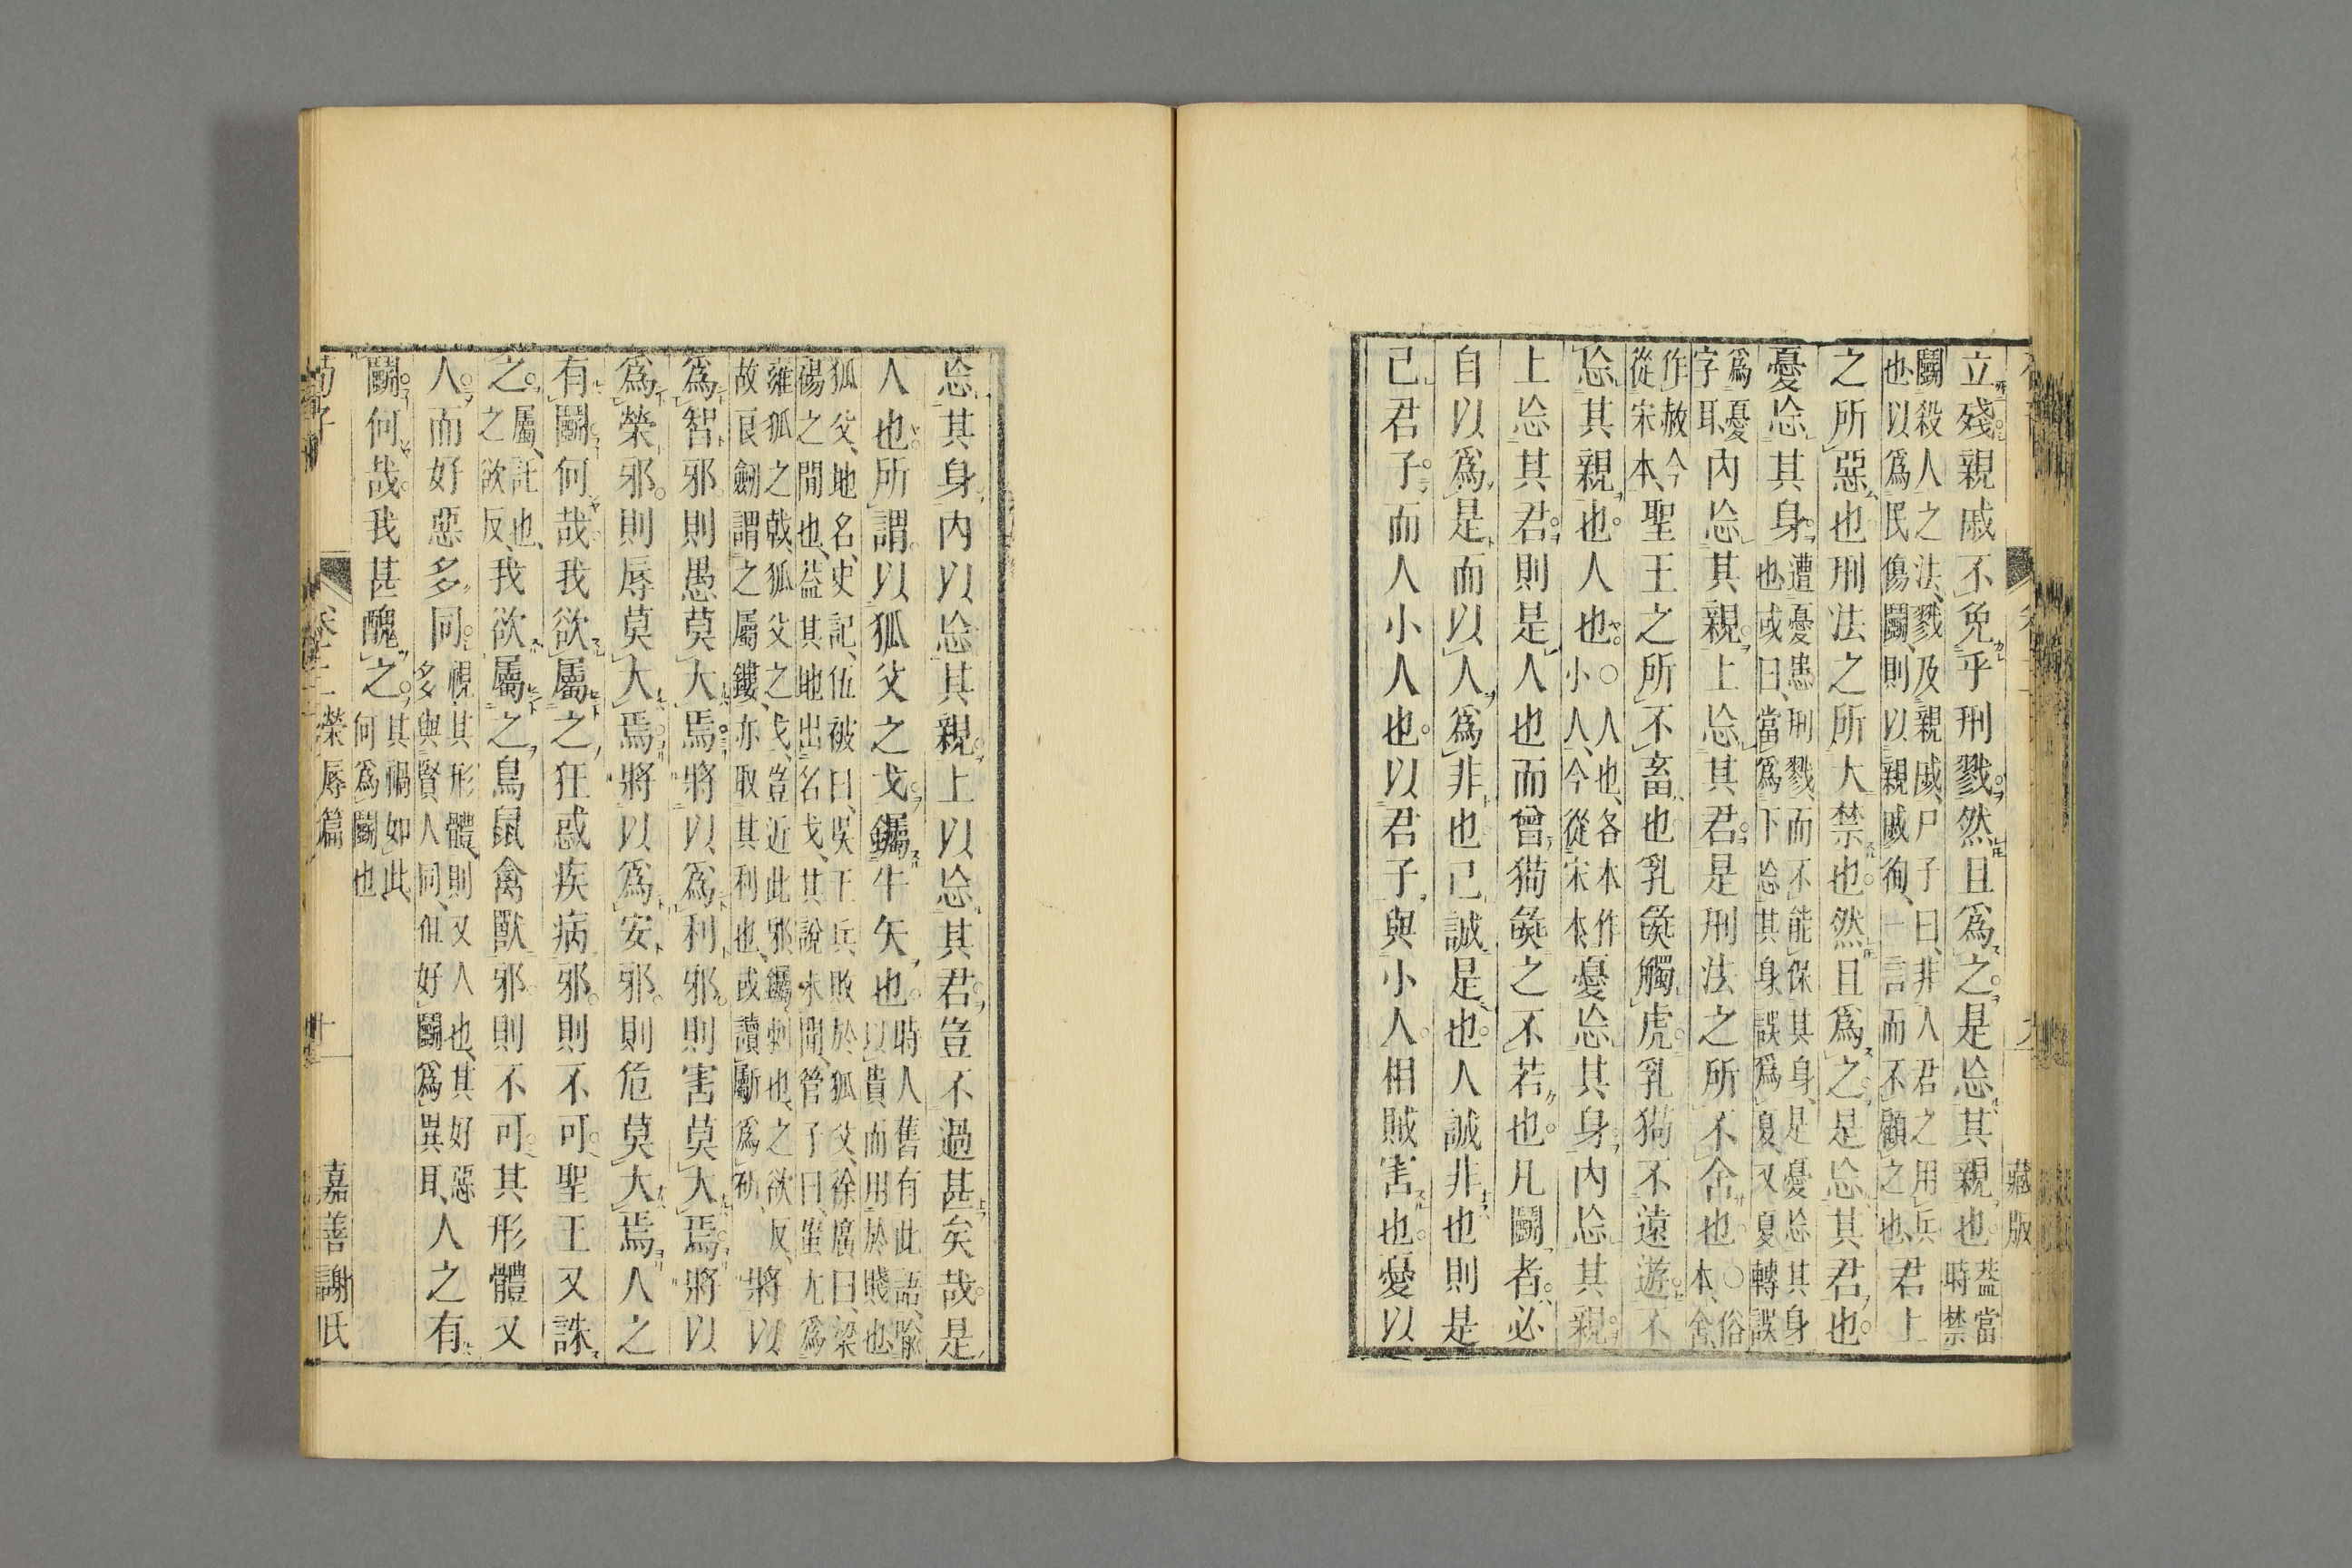 藏版
立殘親戚不免乎刑戮然且爲之是忘其親也蓋當時禁
鬭殺人之法戮及親戚尸子曰非人君之用兵也以爲民傷鬭則以親戚徇一言而不顧之也君上
之所惡也刑法之所大禁也然且爲之是忘其君也
憂忘其身遭憂患刑戮而不能保其身是憂忘其身也或曰當爲下忘其身誤爲夏又夏轉誤
爲憂字耳內忘其親上忘其君是刑法之所不舍也○俗本舍
作赦今從宋本聖王之所不畜也乳彘觸虎乳狗不遠遊不
忘其親也人也○人也各本作小人今從宋本憂忘其身內忘其親
上忘其君則是人也而曾狗彘之不若也凡鬭者必
自以爲是而以人爲非也己誠是也人誠非也則是
己君子而人小人也以君子與小人相賊害也憂以
忘其身內以忘其親上以忘其君豈不過甚矣哉是
人也所謂以狐父之戈钃牛矢也時人舊有此語喩以貴而用於賤也
狐父地名史記伍被曰吳王兵敗於狐父徐廣曰梁碭之閒也蓋其地出名戈其說未聞管子曰蚩尤爲
雍狐之戟狐父之戈豈近此邪钃刺也之欲反故良劒謂之屬鏤亦取其利也或讀斸爲斫將以
爲智邪則愚莫大焉將以爲利邪則害莫大焉將以
爲榮邪則辱莫大焉將以爲安邪則危莫大焉人之
有鬭何哉我欲屬之狂惑疾病邪則不可聖王又誅
之屬託也之欲反我欲屬之鳥鼠禽獸邪則不可其形體又
人而好惡多同視其形體則又人也其好惡多與賢人同但好鬭爲異耳人之有
鬭何哉我甚醜之其禍如此何爲鬭也
荀子 卷二 榮辱篇 十一 嘉善謝氏